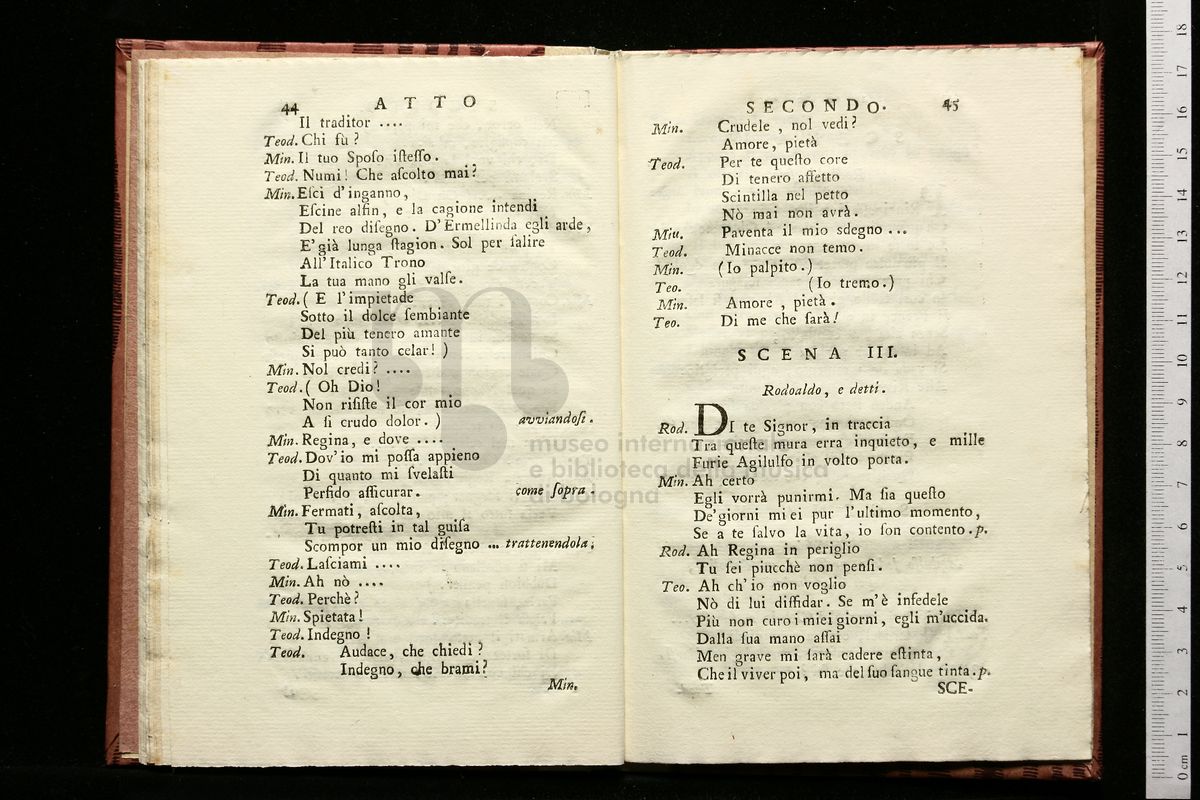 44 ATTO
Il traditor ....
Teod. Chi fù?
Min. Il tuo Spoſo iſteſſo.
Teod. Numi! Che aſcolto mai?
Min. Eſci d'inganno,
Eſcine alfin, e la cagione intendi
Del reo diſegno. D'Ermellinda egli arde,
E' già lunga ſtagion. Sol per ſalire
All'Italico Trono
La tua mano gli valſe.
Teod. ( E l'impietade
Sotto il dolce ſembiante
Del più tenero amante
Si può tanto celar! )
Min. Nol credi? ....
Teod. ( Oh Dio!
Non riſiſte il cor mio
A ſi crudo dolor. ) avviandoſi.
Min. Regina, e dove ....
Teod. Dov'io mi poſſa appieno
Di quanto mi ſvelaſti
Perfido aſſicurar. come ſopra.
Min. Fermati, aſcolta,
Tu potreſti in tal guiſa
Scompor un mio diſegno ... trattenendola.
Teod. Laſciami ....
Min. Ah nò ....
Teod. Perchè?
Min. Spietata!
Teod. Indegno!
Teod. Audace, che chiedi?
Indegno, che brami?
Min.
SECONDO. 45
Min. Crudele, nol vedi?
Amore, pietà
Teod. Per te queſto core
Di tenero affetto
Scintilla nel petto
Nò mai non avrà.
Min. Paventa il mio sdegno ...
Teod. Minacce non temo.
Min. (Io palpito.)
Teo. (Io tremo.)
Min. Amore, pietà.
Teo. Di me che ſarà!
SCENA III.
Rodoaldo, e detti.
Rod. DI te Signor, in traccia
Tra queſte mura erra inquieto, e mille
Furie Agilulfo in volto porta.
Min. Ah certo
Egli vorrà punirmi. Ma ſia queſto
De'giorni miei pur l'ultimo momento,
Se a te ſalvo la vita, io ſon contento. p.
Rod. Ah Regina in periglio
Tu ſei piucchè non penſi.
Teo. Ah ch'io non voglio
Nò di lui diffidar. Se m'è infedele
Più non curo i miei giorni, egli m'uccida.
Dalla ſua mano aſſai
Men grave mi ſarà cadere eſtinta,
Che il viver poi, ma del ſuo ſangue tinta. p.
SCE-
museo internazionale
e biblioteca della musica
di bologna
0 cm 1 2 3 4 5 6 7 8 9 10 11 12 13 14 15 16 17 18